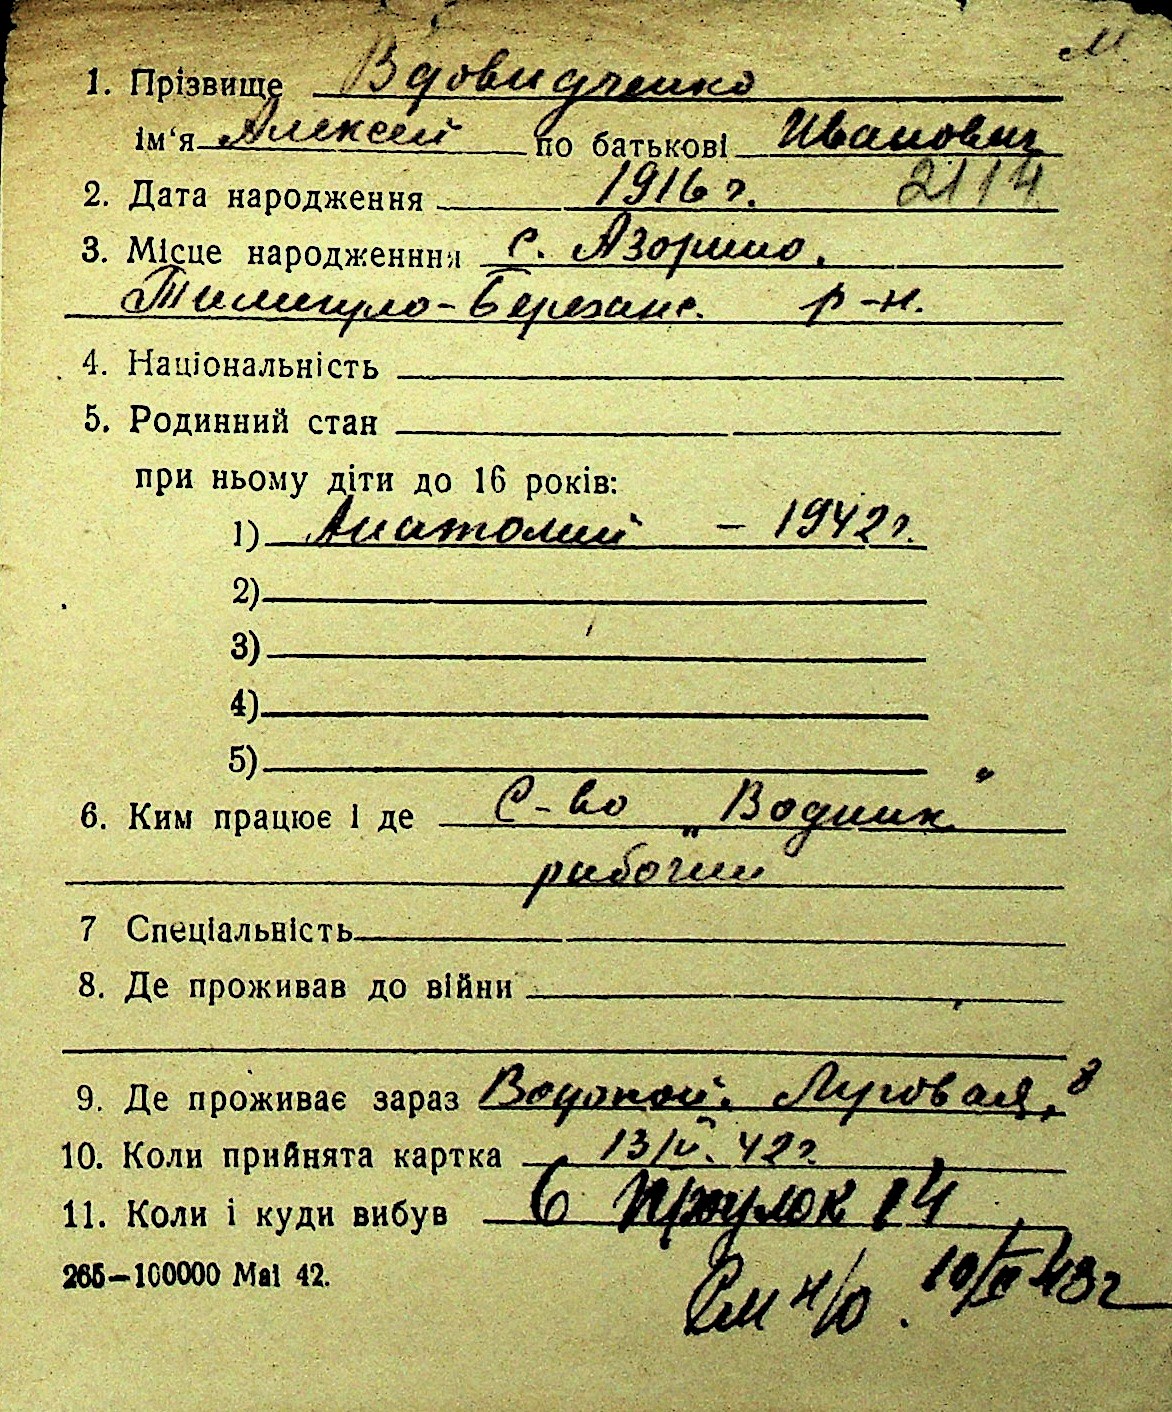 м
1. Прізвище Вдовидченко
ім'я Алексей по батькові Иванович
2. Дата народження 1916 г. 2114
3. Місце народженння с. Азорино.
Тилигуло-Березанс. р-н.
4. Національність
5. Родинний стан
при ньому діти до 16 років:
1) Анатолий - 1942 г.
2)
3)
4)
5)
6. Ким працює і де С-во „Водник"
рабочий
7 Спеціальність
8. Де проживав до війни
9. Де проживає зараз Водопой. Луговая, 8
10. Коли прийнята картка 42 г.
11. Коли і куди вибув 6 14
265—100000 Маі 42.
43 г